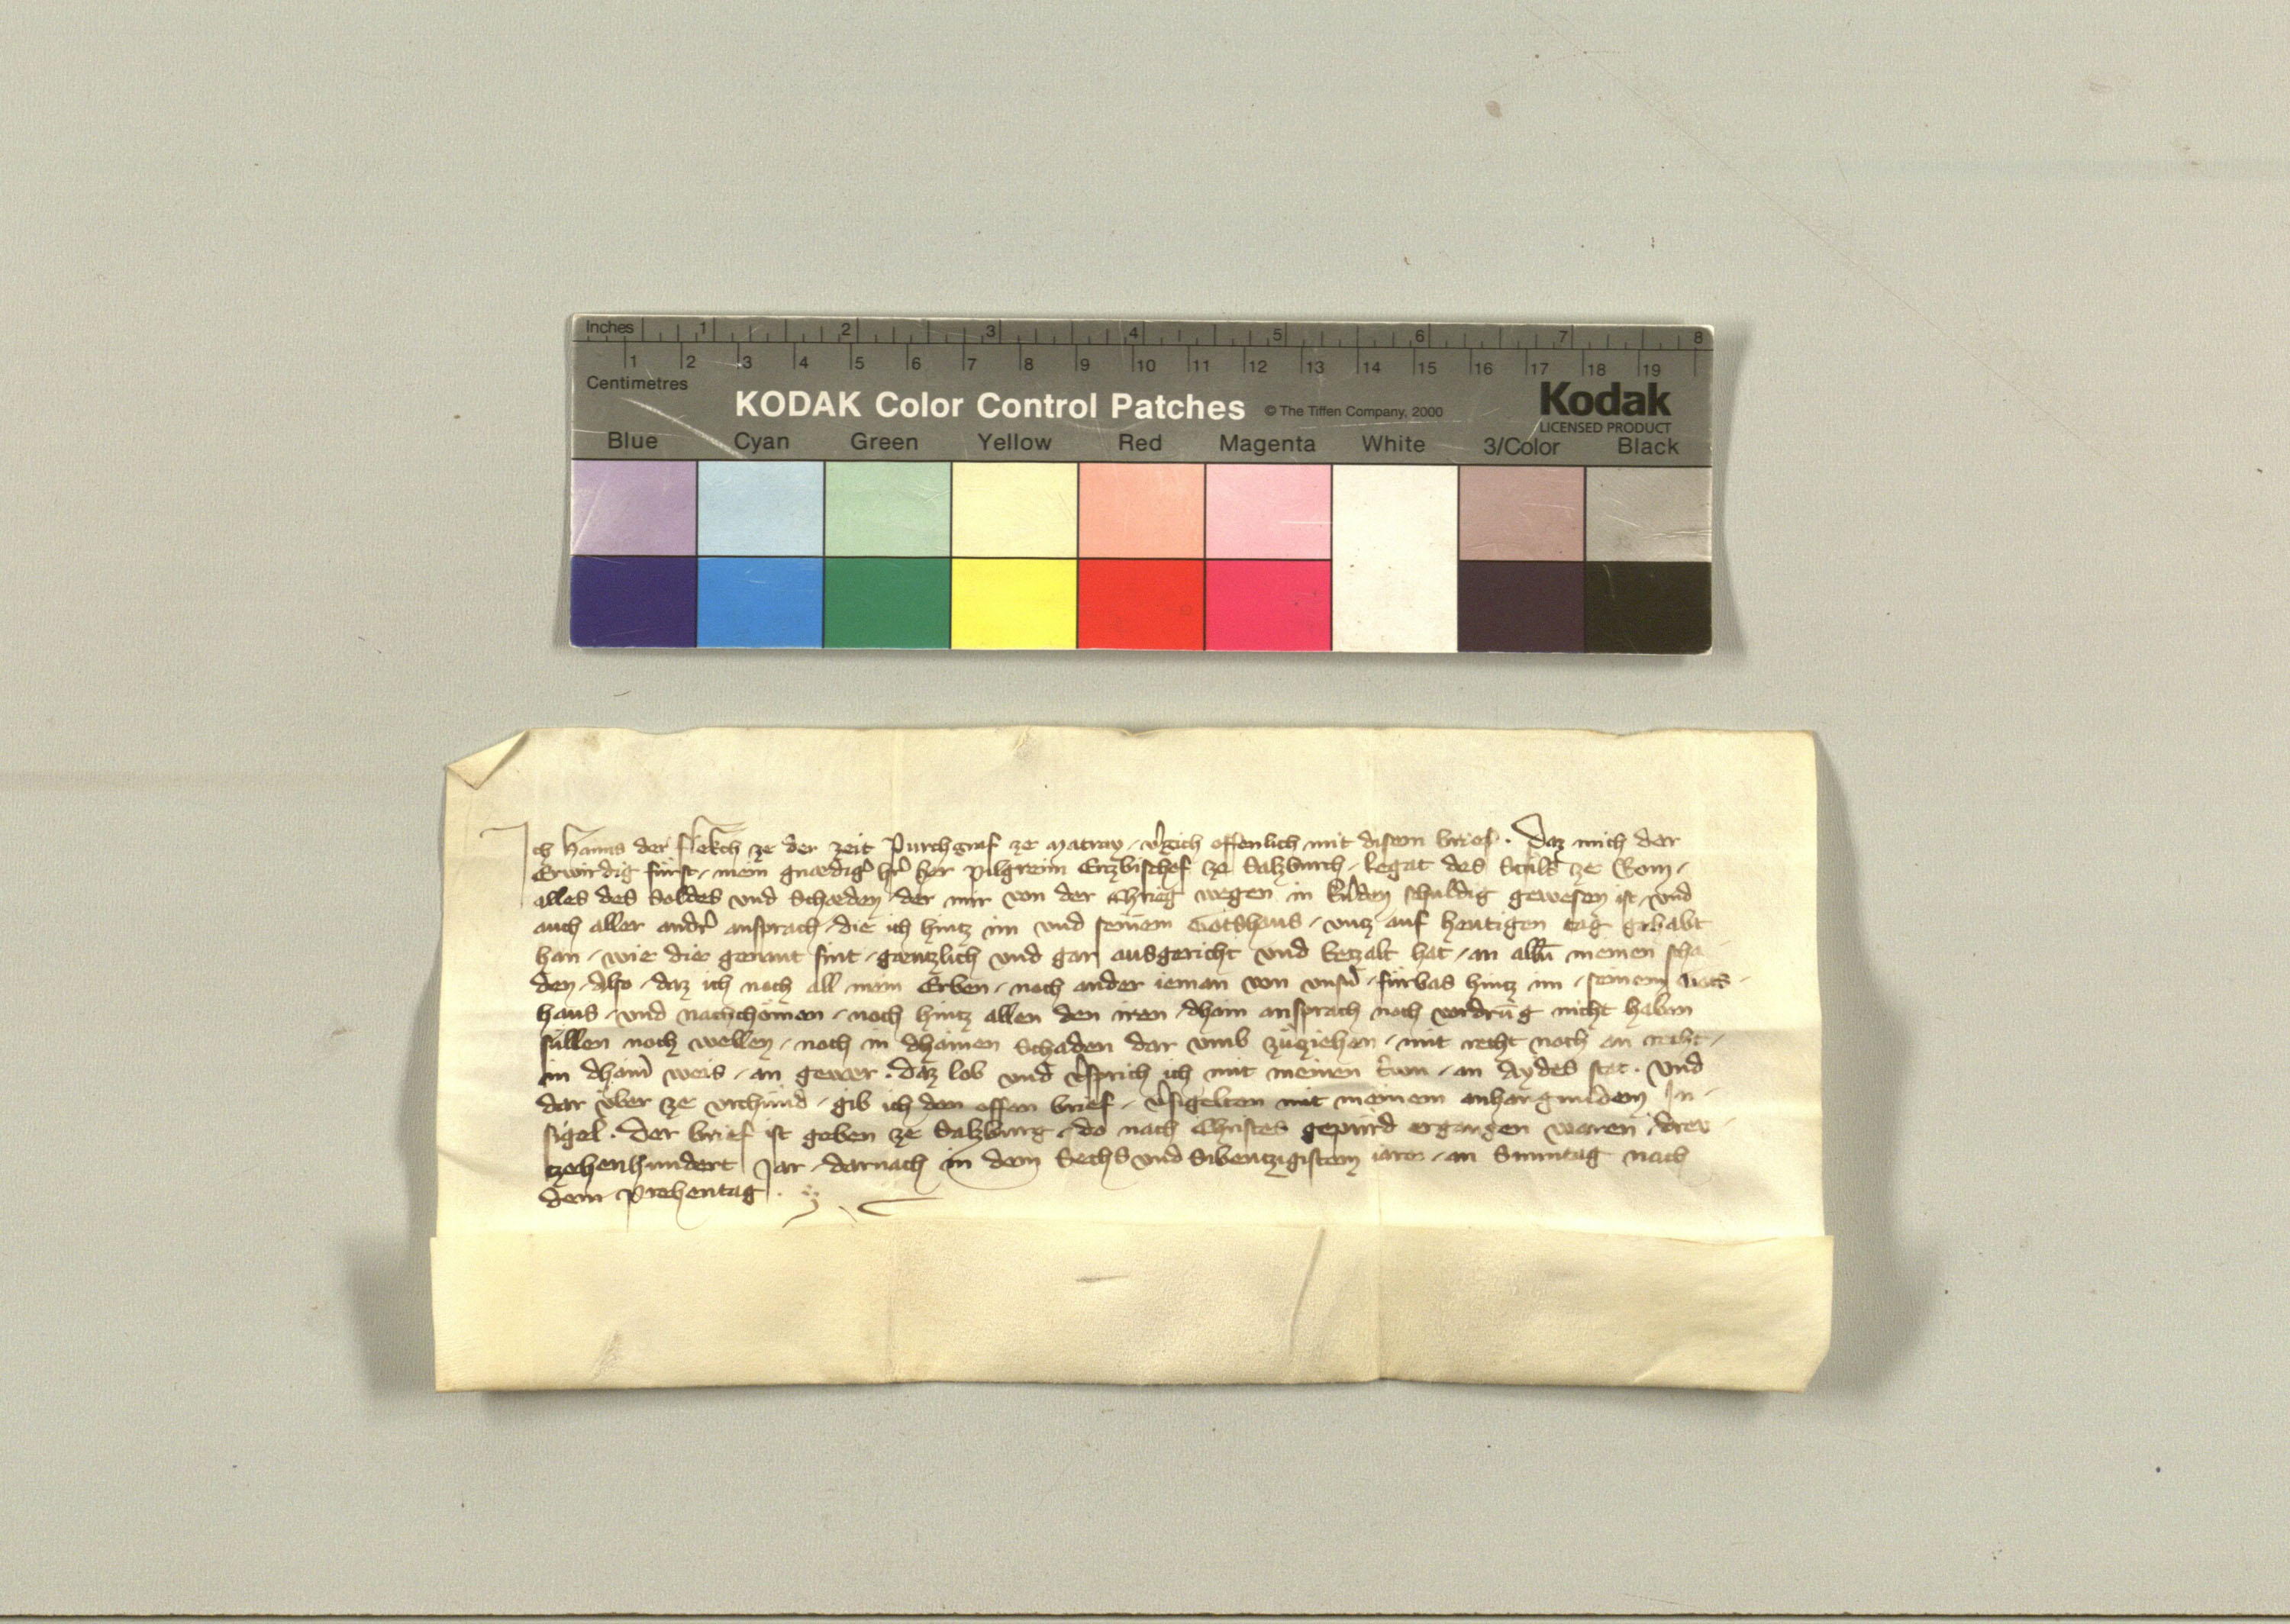 Inches 1 2 3 4 5 6 7 8
1 2 3 4 5 6 7 8 9 10 11 12 13 14 15 16 17 18 19
Centimetres
KODAK Color Control Patches © The Tiffen Company, 2000 Kodak
LICENSED PRODUCT
Blue Cyan Green Yellow Red Magenta White 3/Color Black
Ich Hanns der flekch ze der zeit Purchgraf ze Matray / v̾gich offenlich mit disem brief · Daz mich der
Erwirdig fürst / mein gnædig̾ hr̾ her Pilgreim Erzbischof ze Salzburch / legat des Stuls ze Rom /
alles des Soldes vnd Schæden / der mir von der Chrieg wegen in schuldig gewesen ist / vnd
auch aller andr̾ ansprach / die ich hintz im vnd seinem Gotshaus / vntz auf heutigen tag gehabt
han / wie die genant sint / gæntzlich vnd gar ausgericht vnd betzalt hat / an alln̄ meinen scha
den / Also / daz ich noch all mein Erben / noch ander ieman von vnsn̄ / fürbas hintz im / seinem Gots /
haus / vnd nachchömen / noch hintz allen den iren / dhain ansprach noch vordrūg nicht haben
süllen noch wellen / noch in dhainen Schaden dar vmb züziehen / mit recht noch an recht /
in dhain̄ weis / an geuer · Daz lob vnd v̾sprich ich mit meinen trewn / an Aydes stat · Vnd
dar vber ze vrchünd / gib ich den offen brief / v̾sigelten mit meinem anhangundem In /
sigel · Der brief ist geben ze Salzburg / do nach Christes gepürd ergangen waren / drew /
tzehenhundert Jar / darnach in dem Sechs vnd Sibentzigistem iare / an Sunntag nach
dem Prehentag ·